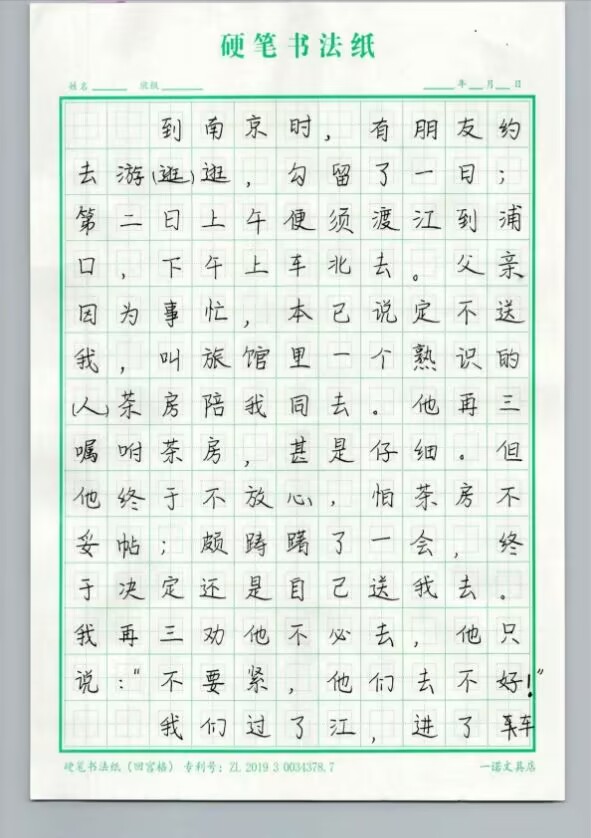 硬笔书法纸
姓名 班级 年 月 日
到南京时,有朋友约
去游(逛)逛,勾留了一日;
第二日上午便须渡江到浦
口,下午上车北去。父亲
因为事忙,本已说定不送
我,叫旅馆里一个熟识的
(人)茶房陪我同去。他再三
嘱咐茶房,甚是仔细。但
他终于不放心,怕茶房不
妥帖;颇踌躇了一会,终
于决定还是自己送我去。
我再三劝他不必去,他只
说:“不要紧,他们去不好!”
我们过了江,进了车
硬笔书法纸(回宫格) 专利号:ZL 2019 3 0034378.7 一诺文具店